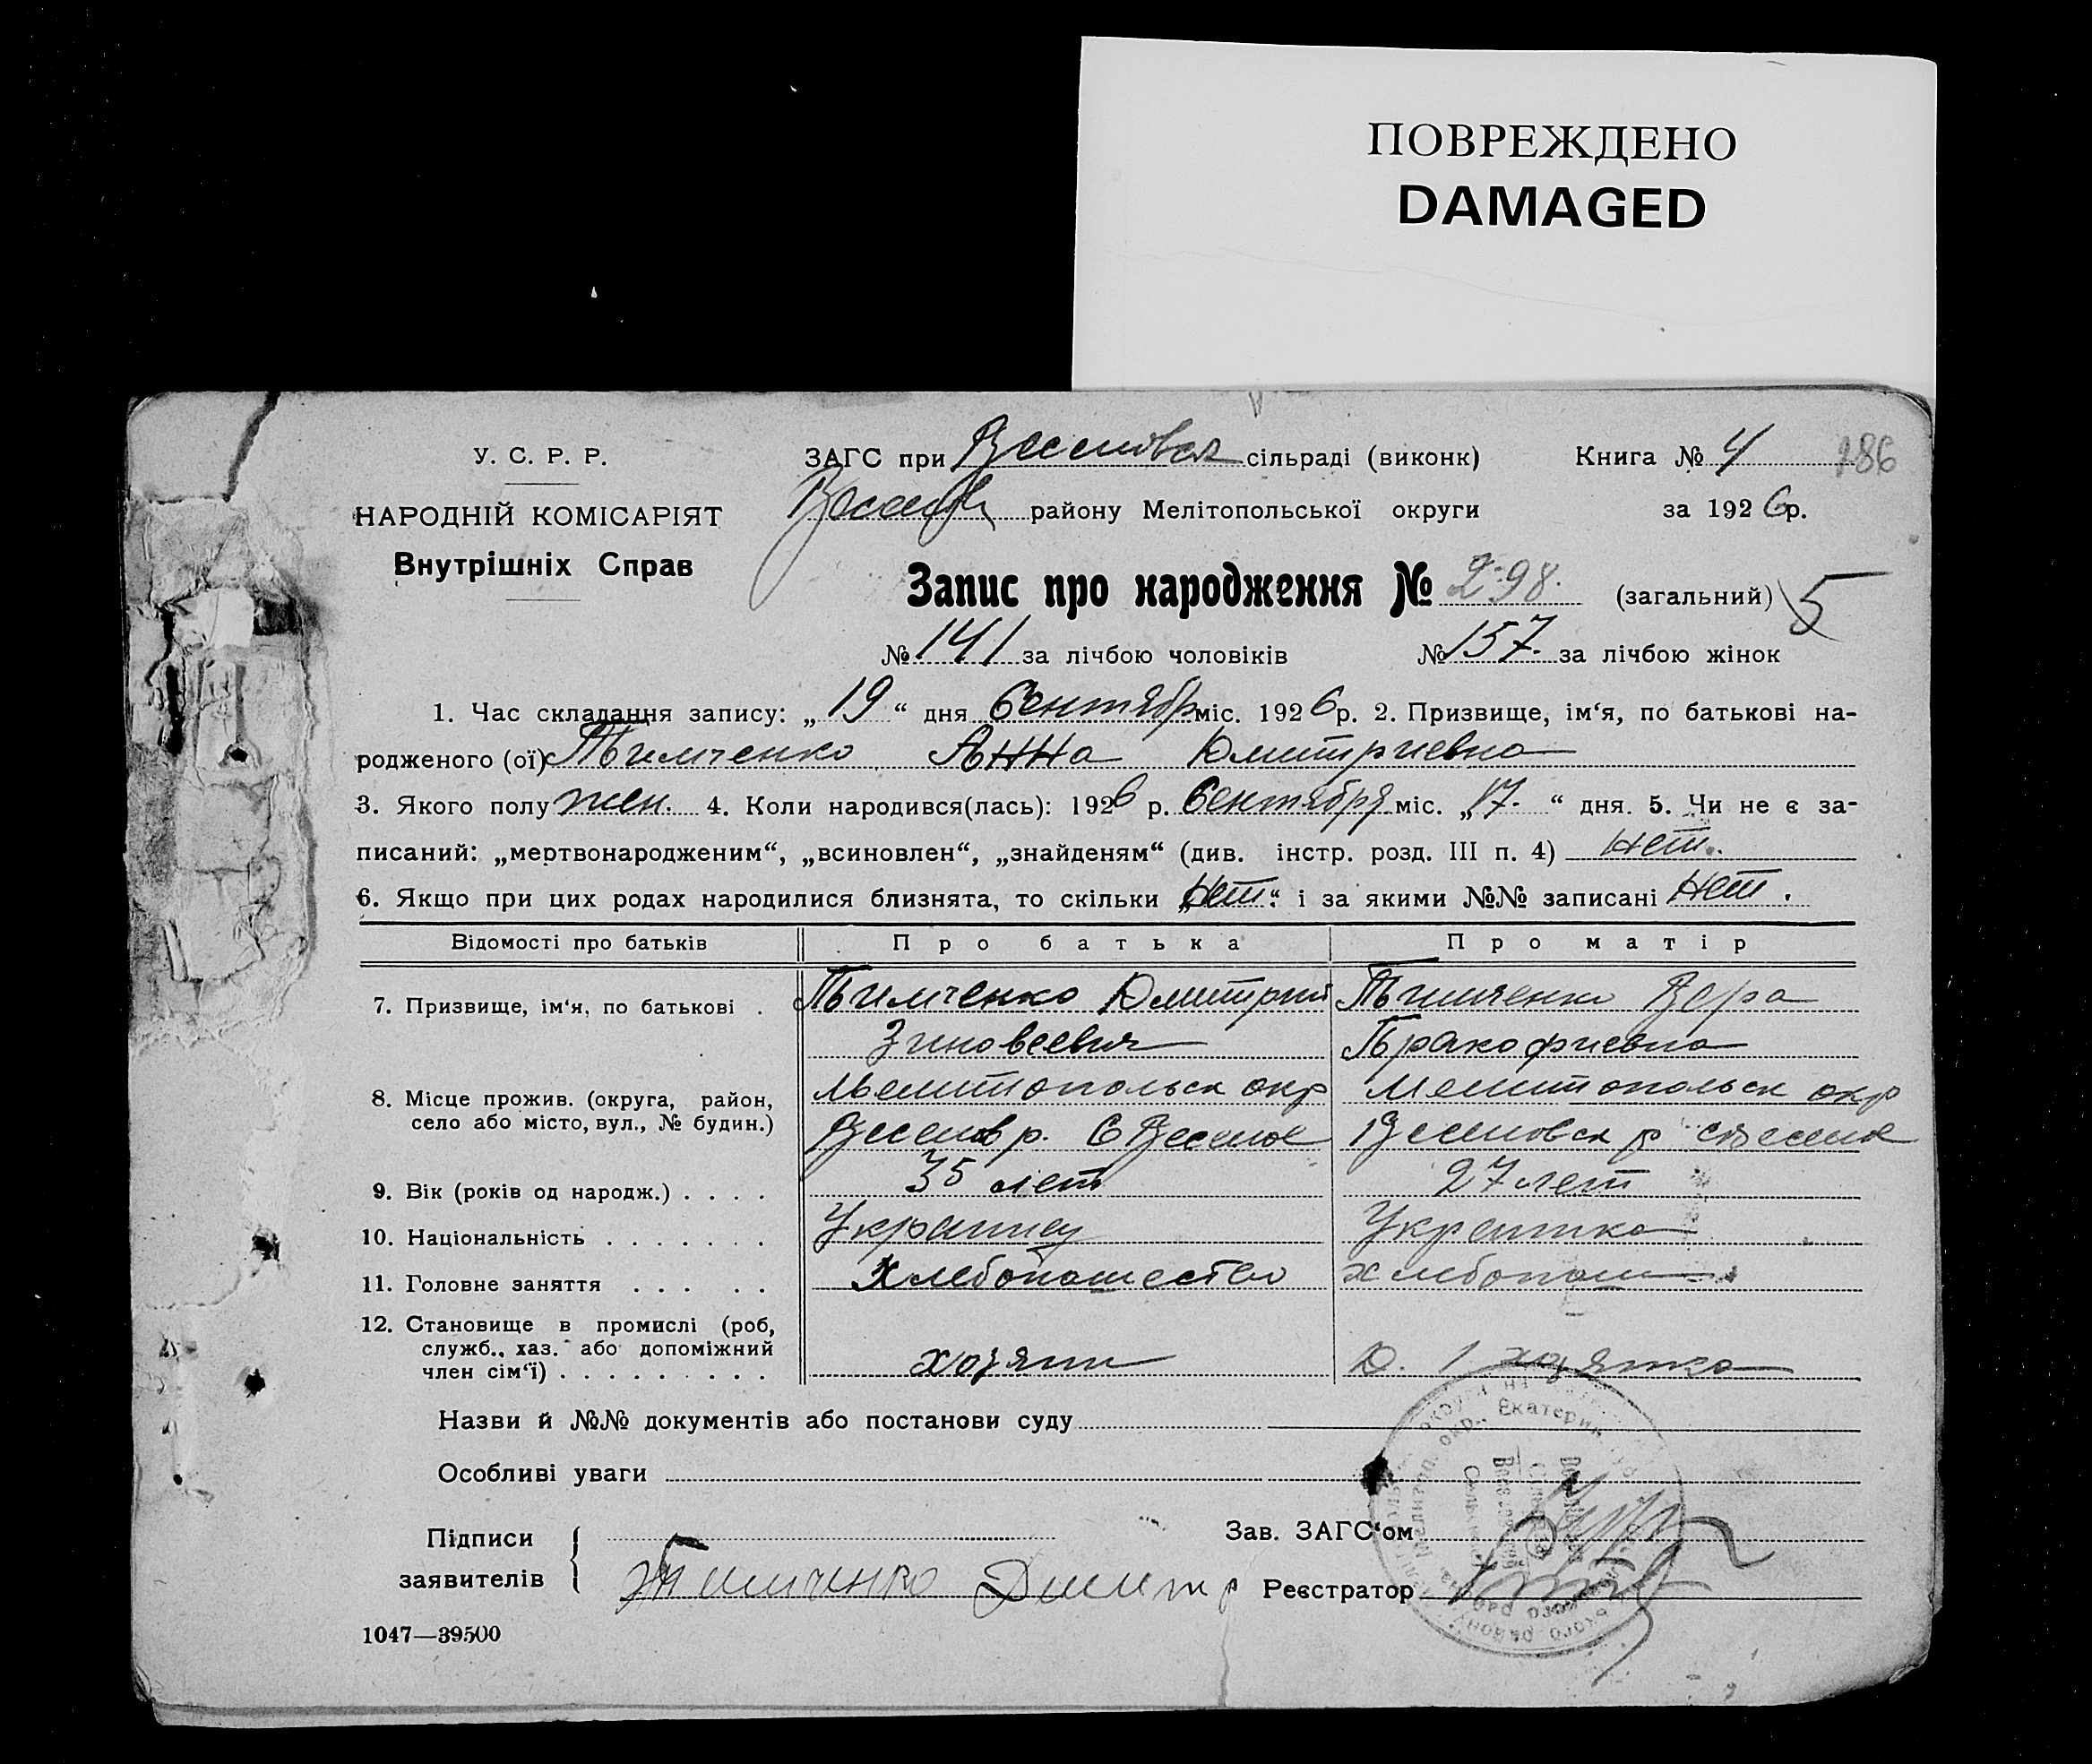 ПОВРЕЖДЕНО
DAMAGED
У. С. Р. Р.
ЗАГС при сільраді (виконк)
Книга № 4
186
НАРОДНІЙ КОМІСАРІЯТ
району Мелітопольської округи
за 1926р.
Внутрішніх Справ
Запис про народження № 298. (загальний) 5
№ 141 за лічбою чоловіків № 157. за лічбою жінок
1. Час складання запису: „19“ дня Сентябр міс. 1926р. 2. Призвище, ім‘я, по батькові на-
родженого (ої) Тимченко Анна Дмитриевна
3. Якого полу жен. 4. Коли народився(лась): 1926 р. Сентября міс. „17.“ дня. 5. Чи не є за-
писаний: „мертвонародженим“, „всиновлен“, „знайденям“ (див. інстр. розд. III п. 4) Нет.
6. Якщо при цих родах народилися близнята, то скільки „Нет“ і за якими №№ записані Нет.
Відомості про батьків Про батька Про матір
7. Призвище, ім‘я, по батькові . Тимченко Дмитрий Тимченко Вера
Зиновеевич Пракофиевна
8. Місце прожив. (округа, район, Мелитопольск окр Мелитопольск окр
село або місто, вул., № будин.) Веселов р. С Веселое Веселовск р с Веселое
9. Вік (років од народж.) . . . . 35 лет 27 лет
10. Національність . . . . . . . Украинец Украинка
11. Головне заняття . . . . . Хлебопашество хлебопаш
12. Становище в промислі (роб,
служб., хаз. або допоміжний
член сім‘ї) . . . . . . . . . хозяин хозяйка
Назви й №№ документів або постанови суду
Особливі уваги
Підписи
заявителів
Зав. ЗАГС‘ом
Тимченко Дмитр Реєстратор
1047—39500